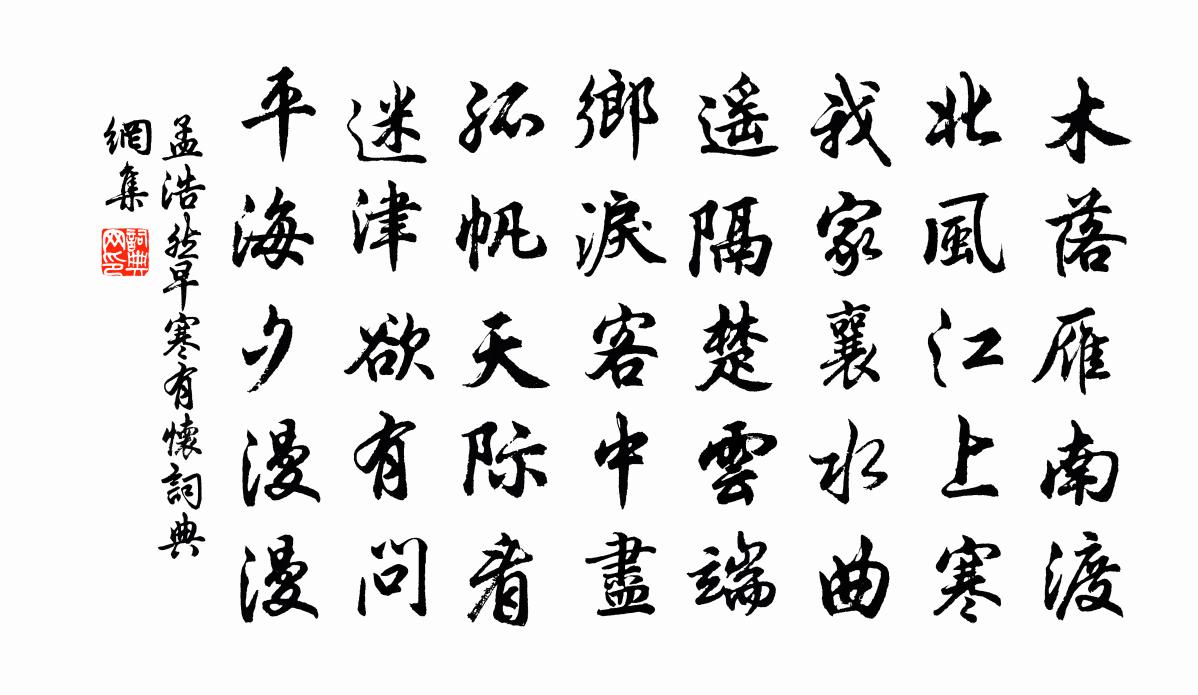 木落雁南渡
北風江上寒
我家襄水曲
遥隔楚雲端
鄉淚客中盡
孤帆天际看
迷津欲有問
平海夕漫漫
孟浩然早寒有懷詞典
網集
詞典网印